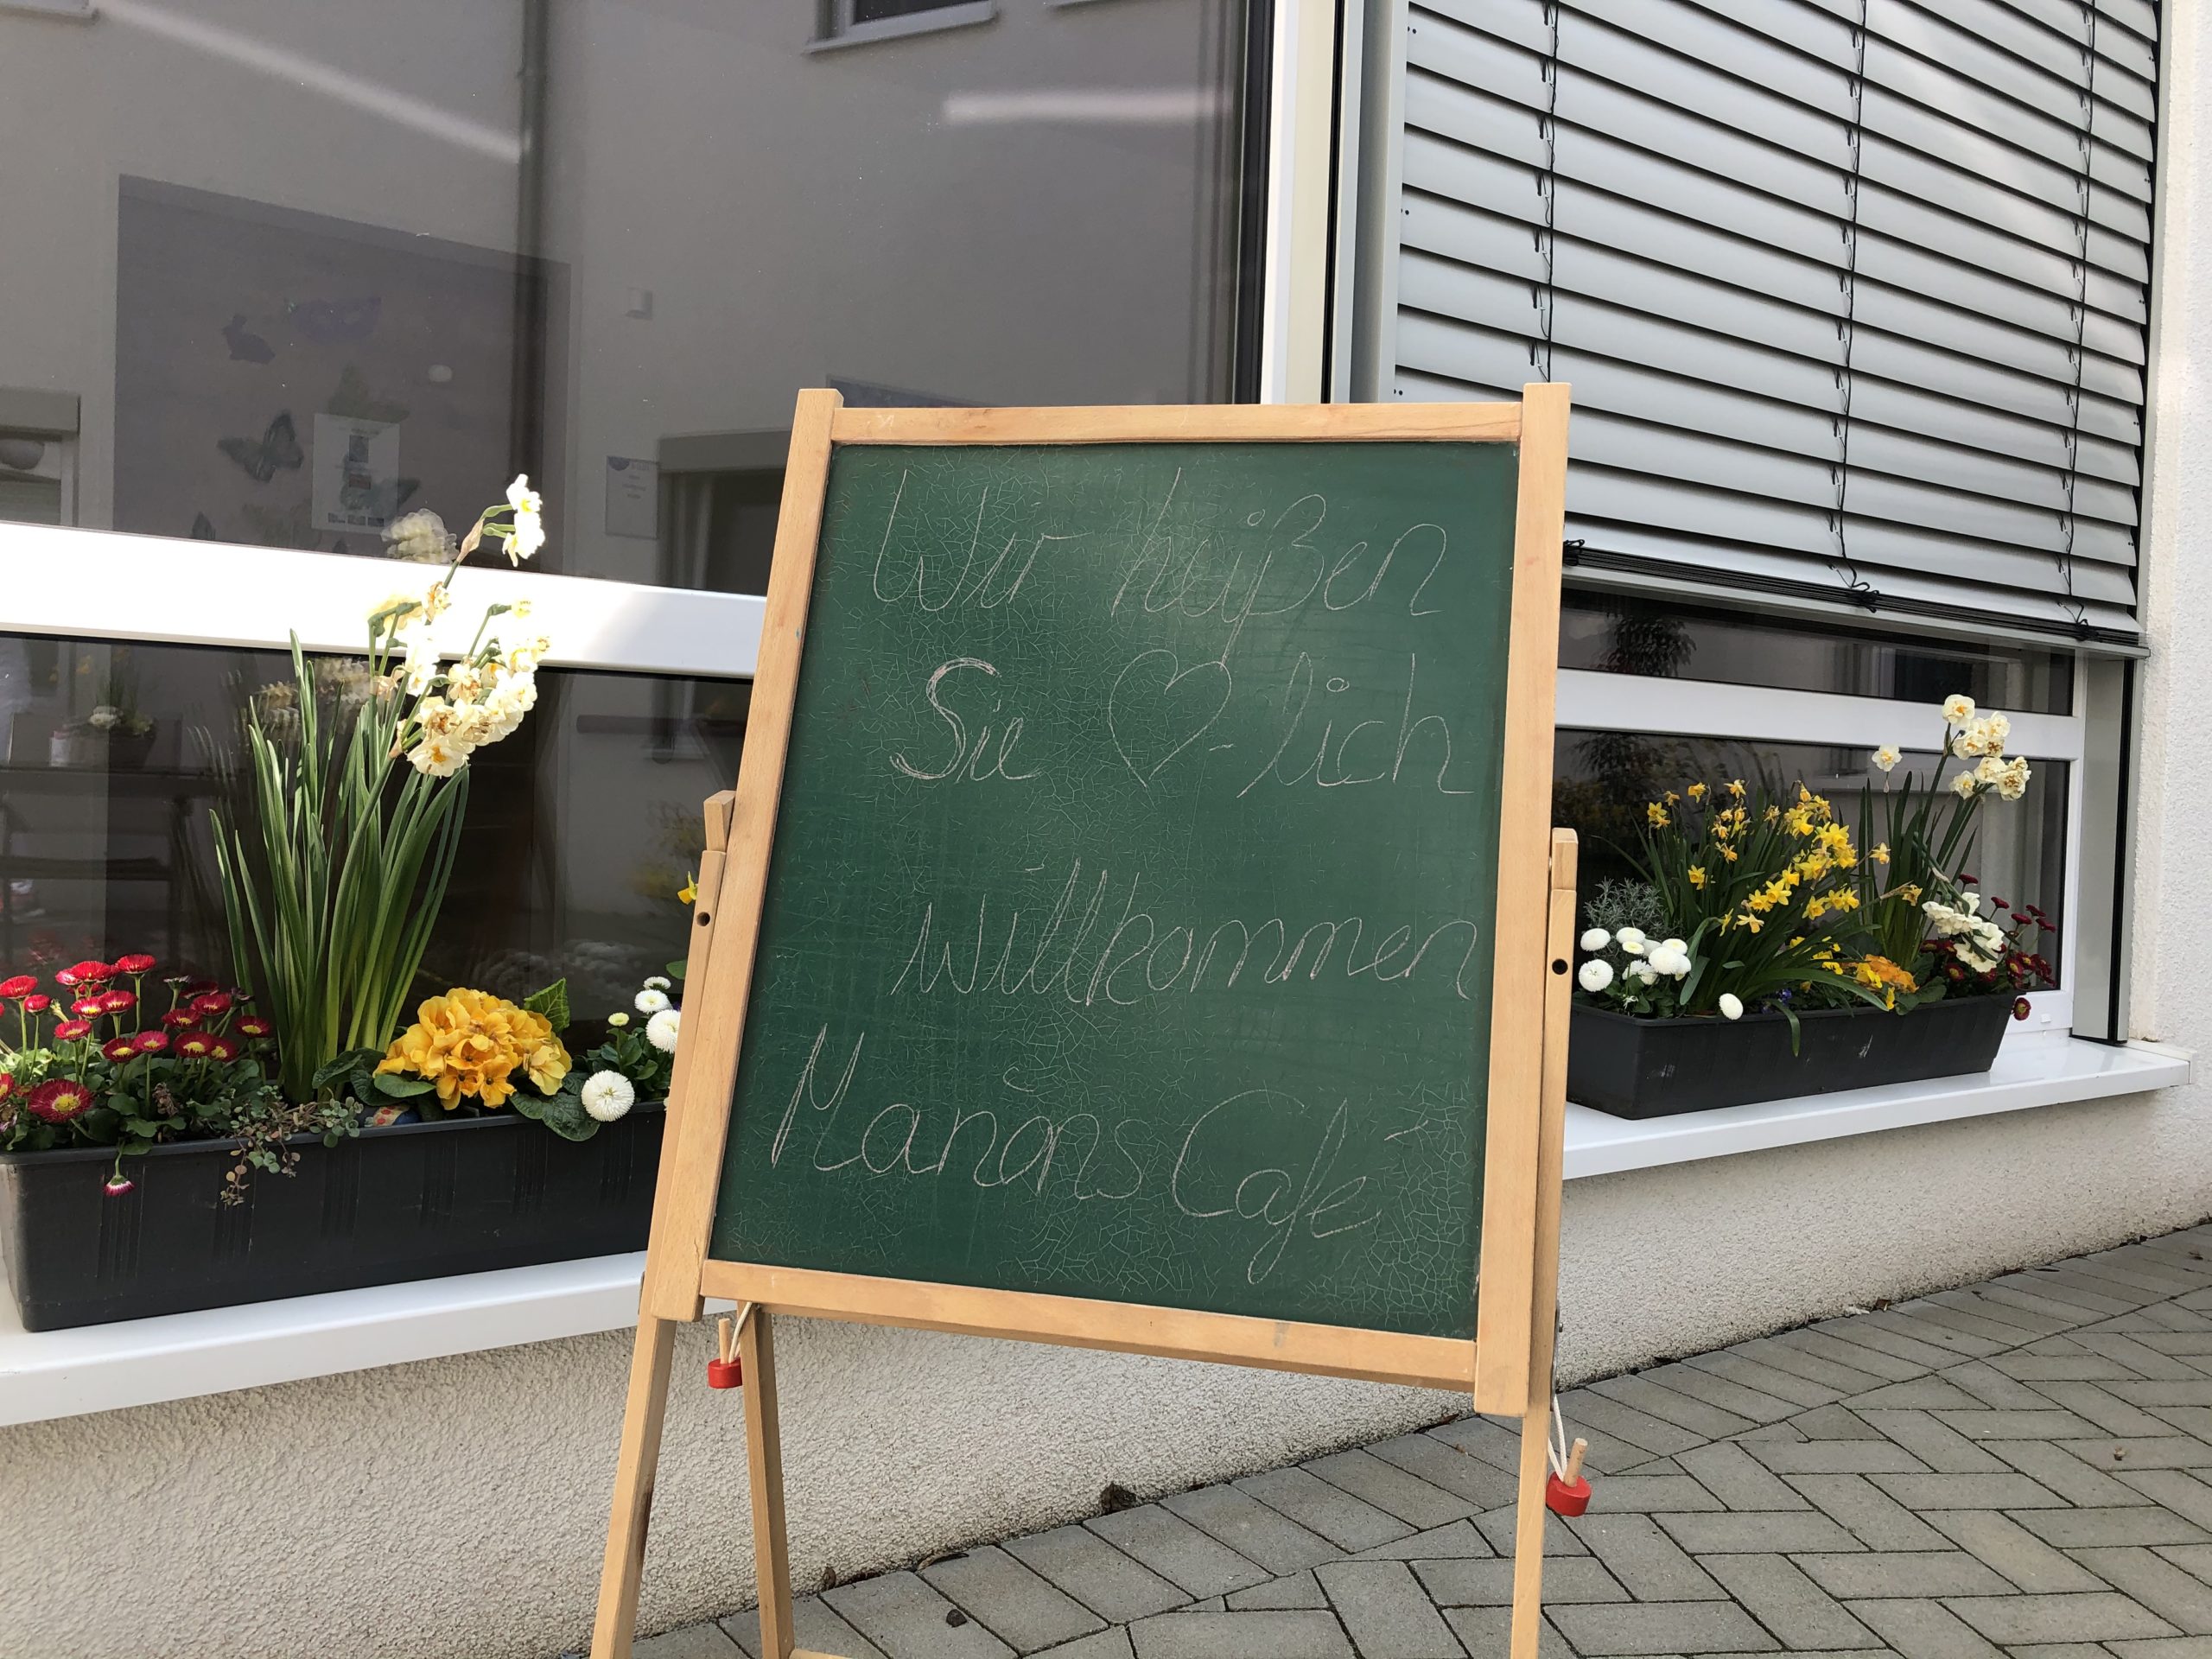 Wir heißen
Sie ♡-lich
willkommen
Manons Café